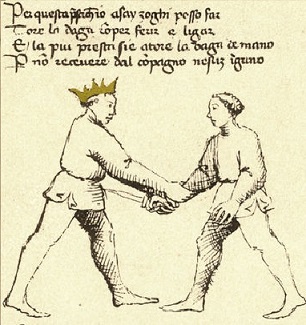 Per questa presa chio asay zoghi posso far
Tore la daga romper ferir e ligar
E la piu presta sie a tore la daga de mano
P no recevere dal cōpagno nesuz ingano